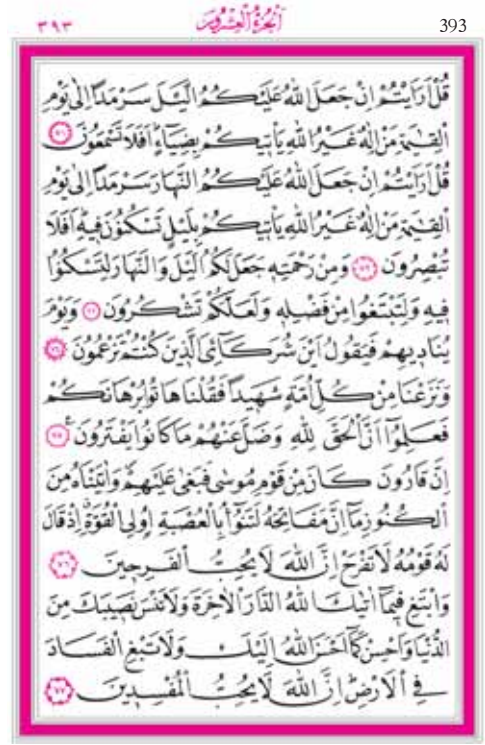 ٣٩٣ اَلْجُزْءُ الْعِشْرُونَ 393
قُلْ اَرَاَيْتُمْ اِنْ جَعَلَ اللّٰهُ عَلَيْكُمُ الَّيْلَ سَرْمَدًا اِلٰى يَوْمِ
الْقِيٰمَةِ مَنْ اِلٰهٌ غَيْرُ اللّٰهِ يَأْتِيكُمْ بِضِيَاءٍ اَفَلَا تَسْمَعُونَ ﴿٧١﴾
قُلْ اَرَاَيْتُمْ اِنْ جَعَلَ اللّٰهُ عَلَيْكُمُ النَّهَارَ سَرْمَدًا اِلٰى يَوْمِ
الْقِيٰمَةِ مَنْ اِلٰهٌ غَيْرُ اللّٰهِ يَأْتِيكُمْ بِلَيْلٍ تَسْكُنُونَ فِيهِ اَفَلَا
تُبْصِرُونَ ﴿٧٢﴾ وَمِنْ رَحْمَتِهِ جَعَلَ لَكُمُ الَّيْلَ وَالنَّهَارَ لِتَسْكُنُوا
فِيهِ وَلِتَبْتَغُوا مِنْ فَضْلِهِ وَلَعَلَّكُمْ تَشْكُرُونَ ﴿٧٣﴾ وَيَوْمَ
يُنَادِيهِمْ فَيَقُولُ اَيْنَ شُرَكَائِىَ الَّذِينَ كُنْتُمْ تَزْعُمُونَ ﴿٧٤﴾
وَنَزَعْنَا مِنْ كُلِّ اُمَّةٍ شَهِيدًا فَقُلْنَا هَاتُوا بُرْهَانَكُمْ
فَعَلِمُوا اَنَّ الْحَقَّ لِلّٰهِ وَضَلَّ عَنْهُمْ مَا كَانُوا يَفْتَرُونَ ﴿٧٥﴾
اِنَّ قَارُونَ كَانَ مِنْ قَوْمِ مُوسٰى فَبَغٰى عَلَيْهِمْ وَاٰتَيْنَاهُ مِنَ
الْكُنُوزِ مَا اِنَّ مَفَاتِحَهُ لَتَنُوأُ بِالْعُصْبَةِ اُولِى الْقُوَّةِ اِذْ قَالَ
لَهُ قَوْمُهُ لَا تَفْرَحْ اِنَّ اللّٰهَ لَا يُحِبُّ الْفَرِحِينَ ﴿٧٦﴾
وَابْتَغِ فِيمَا اٰتٰيكَ اللّٰهُ الدَّارَ الْاٰخِرَةَ وَلَا تَنْسَ نَصِيبَكَ مِنَ
الدُّنْيَا وَاَحْسِنْ كَمَا اَحْسَنَ اللّٰهُ اِلَيْكَ وَلَا تَبْغِ الْفَسَادَ
فِى الْاَرْضِ اِنَّ اللّٰهَ لَا يُحِبُّ الْمُفْسِدِينَ ﴿٧٧﴾